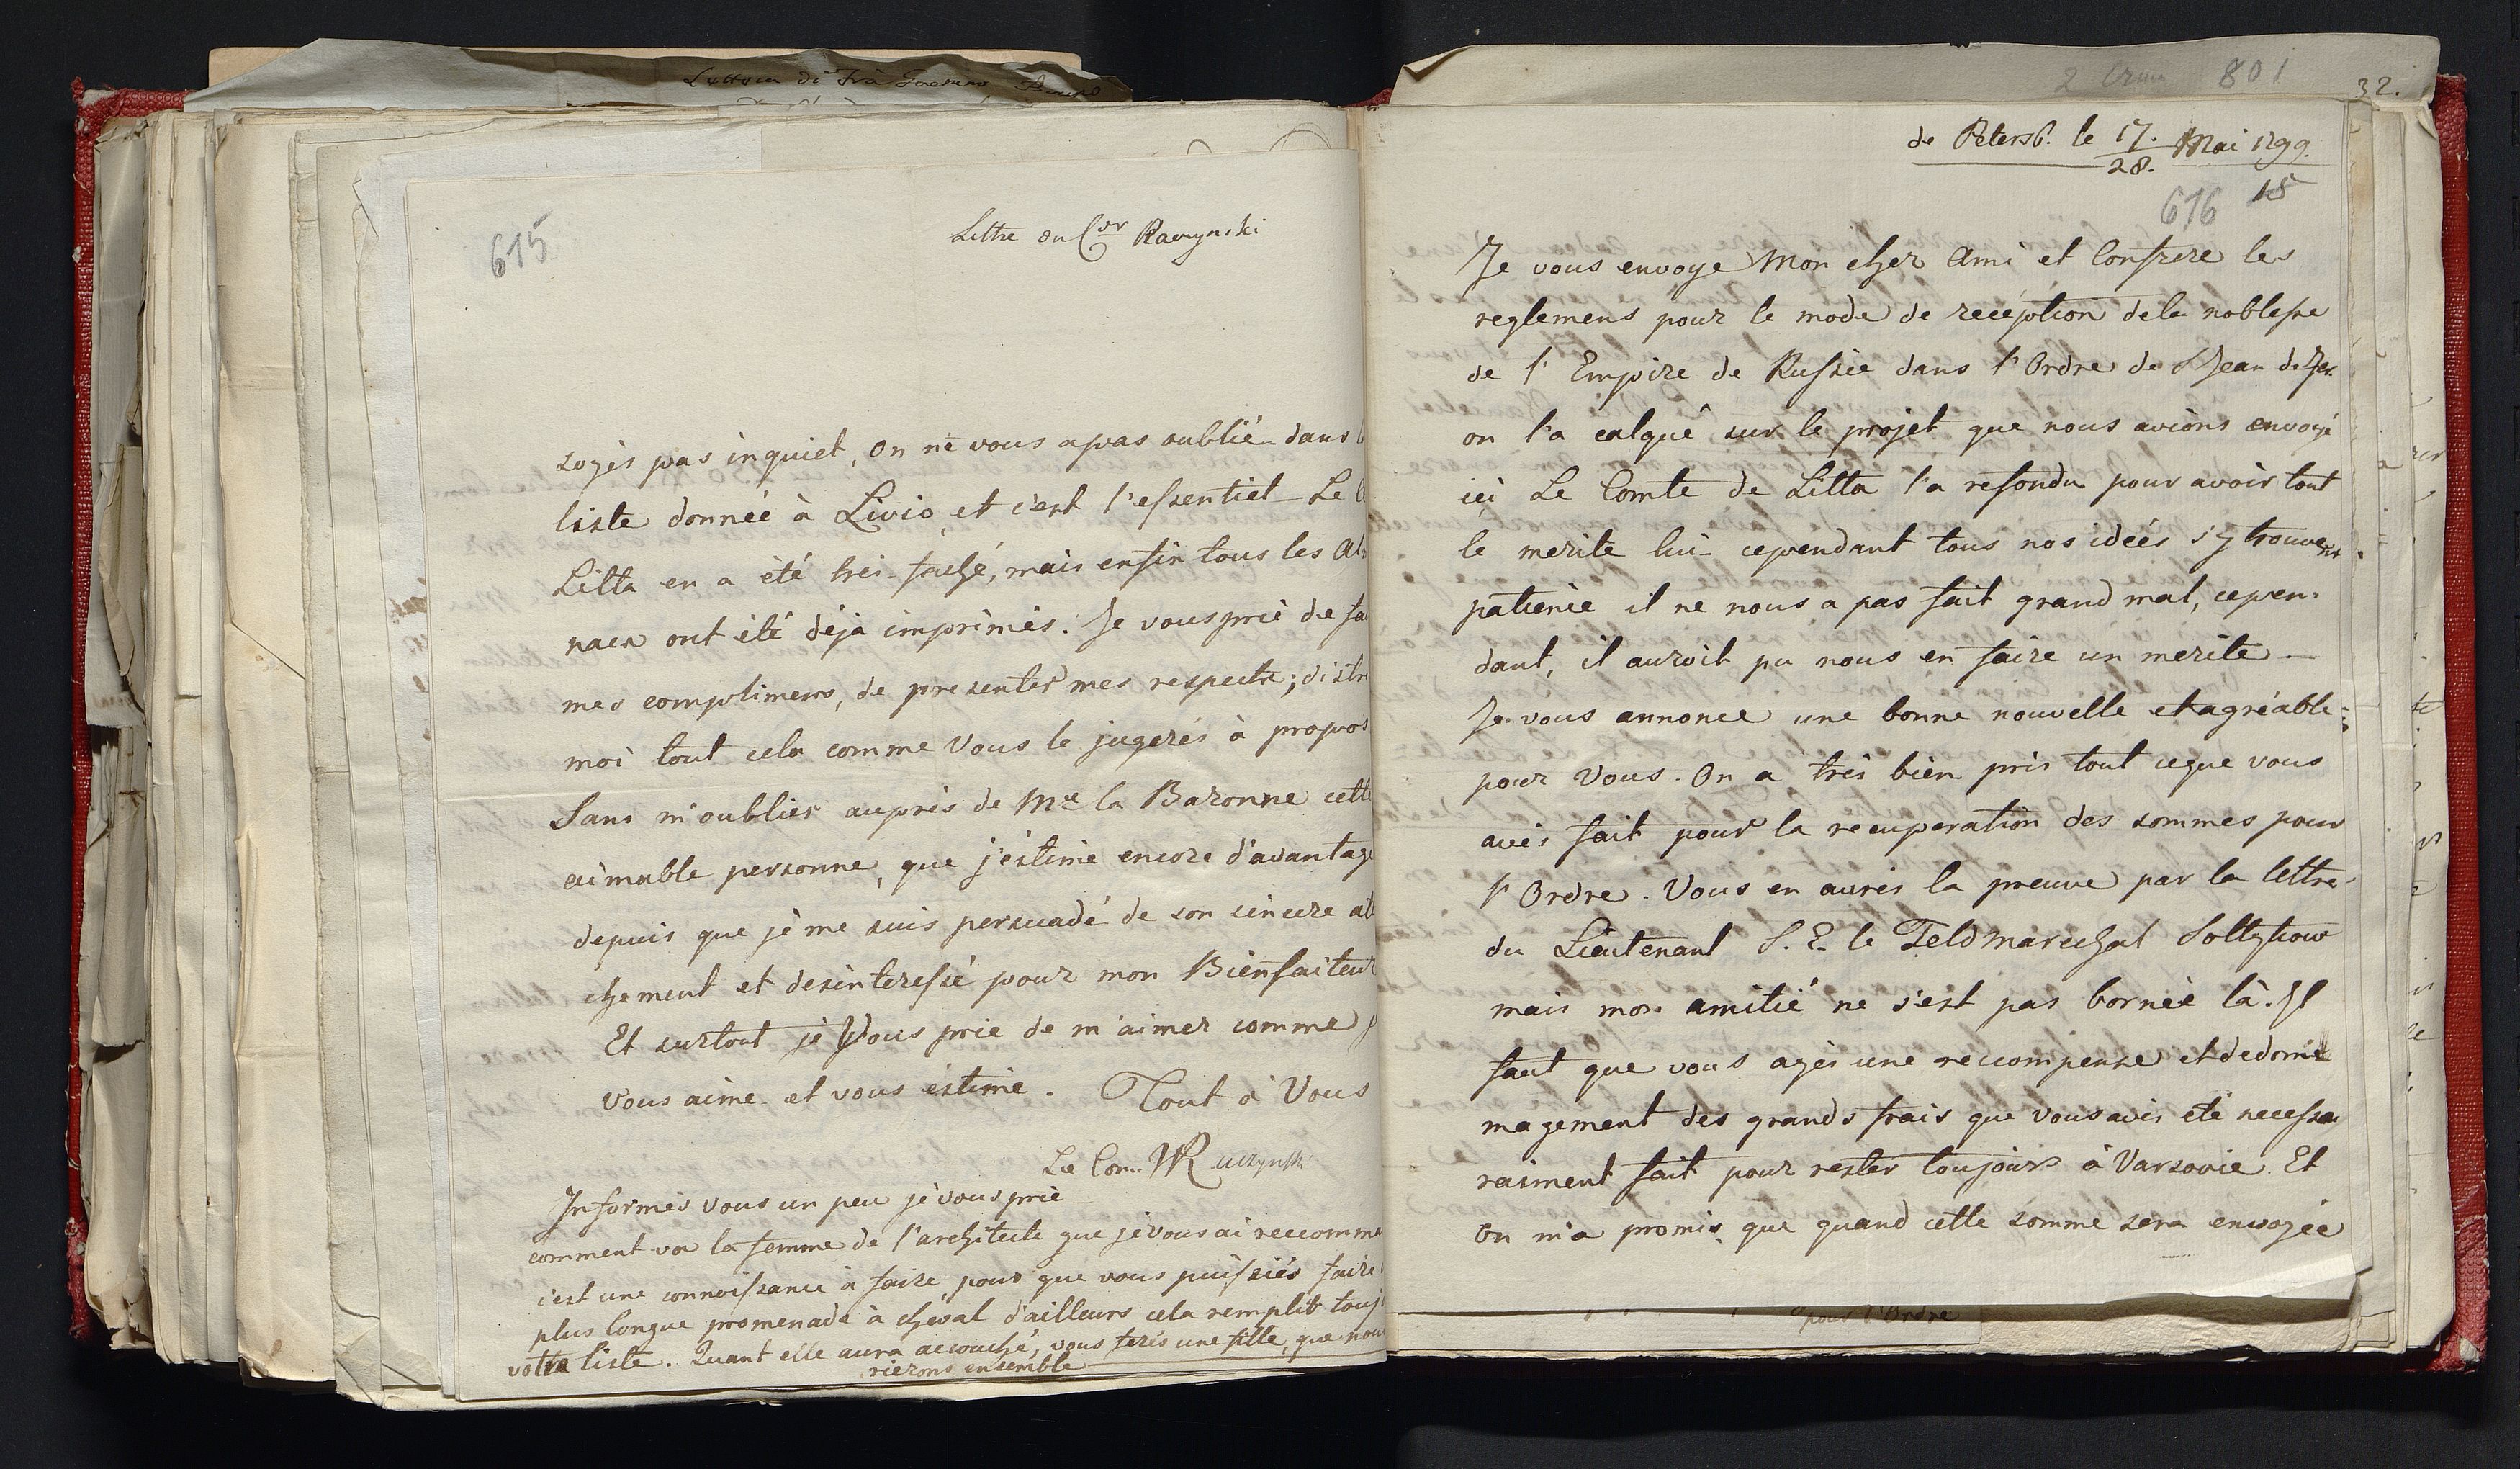 615
Lettre du C.or Raczynski
soyès pas inquiet, on ne vous a pas oublié dans
liste donnée à Livio et c'est l'essentiel Le
Litta en a été tres-faché, mais enfin tous les Al
nacs ont été déja imprimès. Je vous prie de fa
mes complimens, de presenter mes respects; distr
moi tout cela comme Vous le jugerés à propos
Sans m'oublier auprès de Me la Baronne cette
aimable personne, que j'éstime encore d'avantage
depuis que je me suis persuadé de son sincere att
chement et desinteressé pour mon Bienfaiteur
Et surtout je Vous prie de m'aimer comme j
vous aime et vous éstime. Tout à Vous
Le Com. Raczynski
Informès vous un peu je vous prie
comment va la femme de l'architecte que je vous ai reccomme
c'est une connoissance à faire, pour que vous puissiés faire
plus longue promenade à cheval d'ailleurs cela remplit touj
votre liste. Quant elle aura accouché, vous ferés une fille, que nou
rierons ensemble
2 801
32.
de Petersb. le 17./28. Mai 1799.
616 15
Je vous envoye Mon cher Ami et Confrere les
reglemens pour le mode de recéption de la noblesse
de l'Empire de Russie dans l'Ordre de S Jean de Jer.
on l'a calqué sur le projet que nous avions envoyé
ici Le Comte de Litta l'a refondu pour avoir tout
le merite lui cependant tous nos idées s'y trouvent.
patience il ne nous a pas fait grand mal, cepen-
dant, il auroit pu nous en faire un merite
Je vous annonce une bonne nouvelle et agréable
pour Vous. On a très bien pris tout ceque vous
avès fait pour la recuperation des sommes pour
l'Ordre. Vous en aurès la preuve par la lettre
du Lieutenant S. E. le Feldmarechal Soltykow
mais mon amitié ne s'est pas bornée là. Il
faut que vous ayès une reccompense et dedom
magement des grands frais que vous avès été necessa
raiment fait pour rester toujours à Varsovie. Et
on m'a promis que quand cette somme sera envoyée
pour l'Ordre